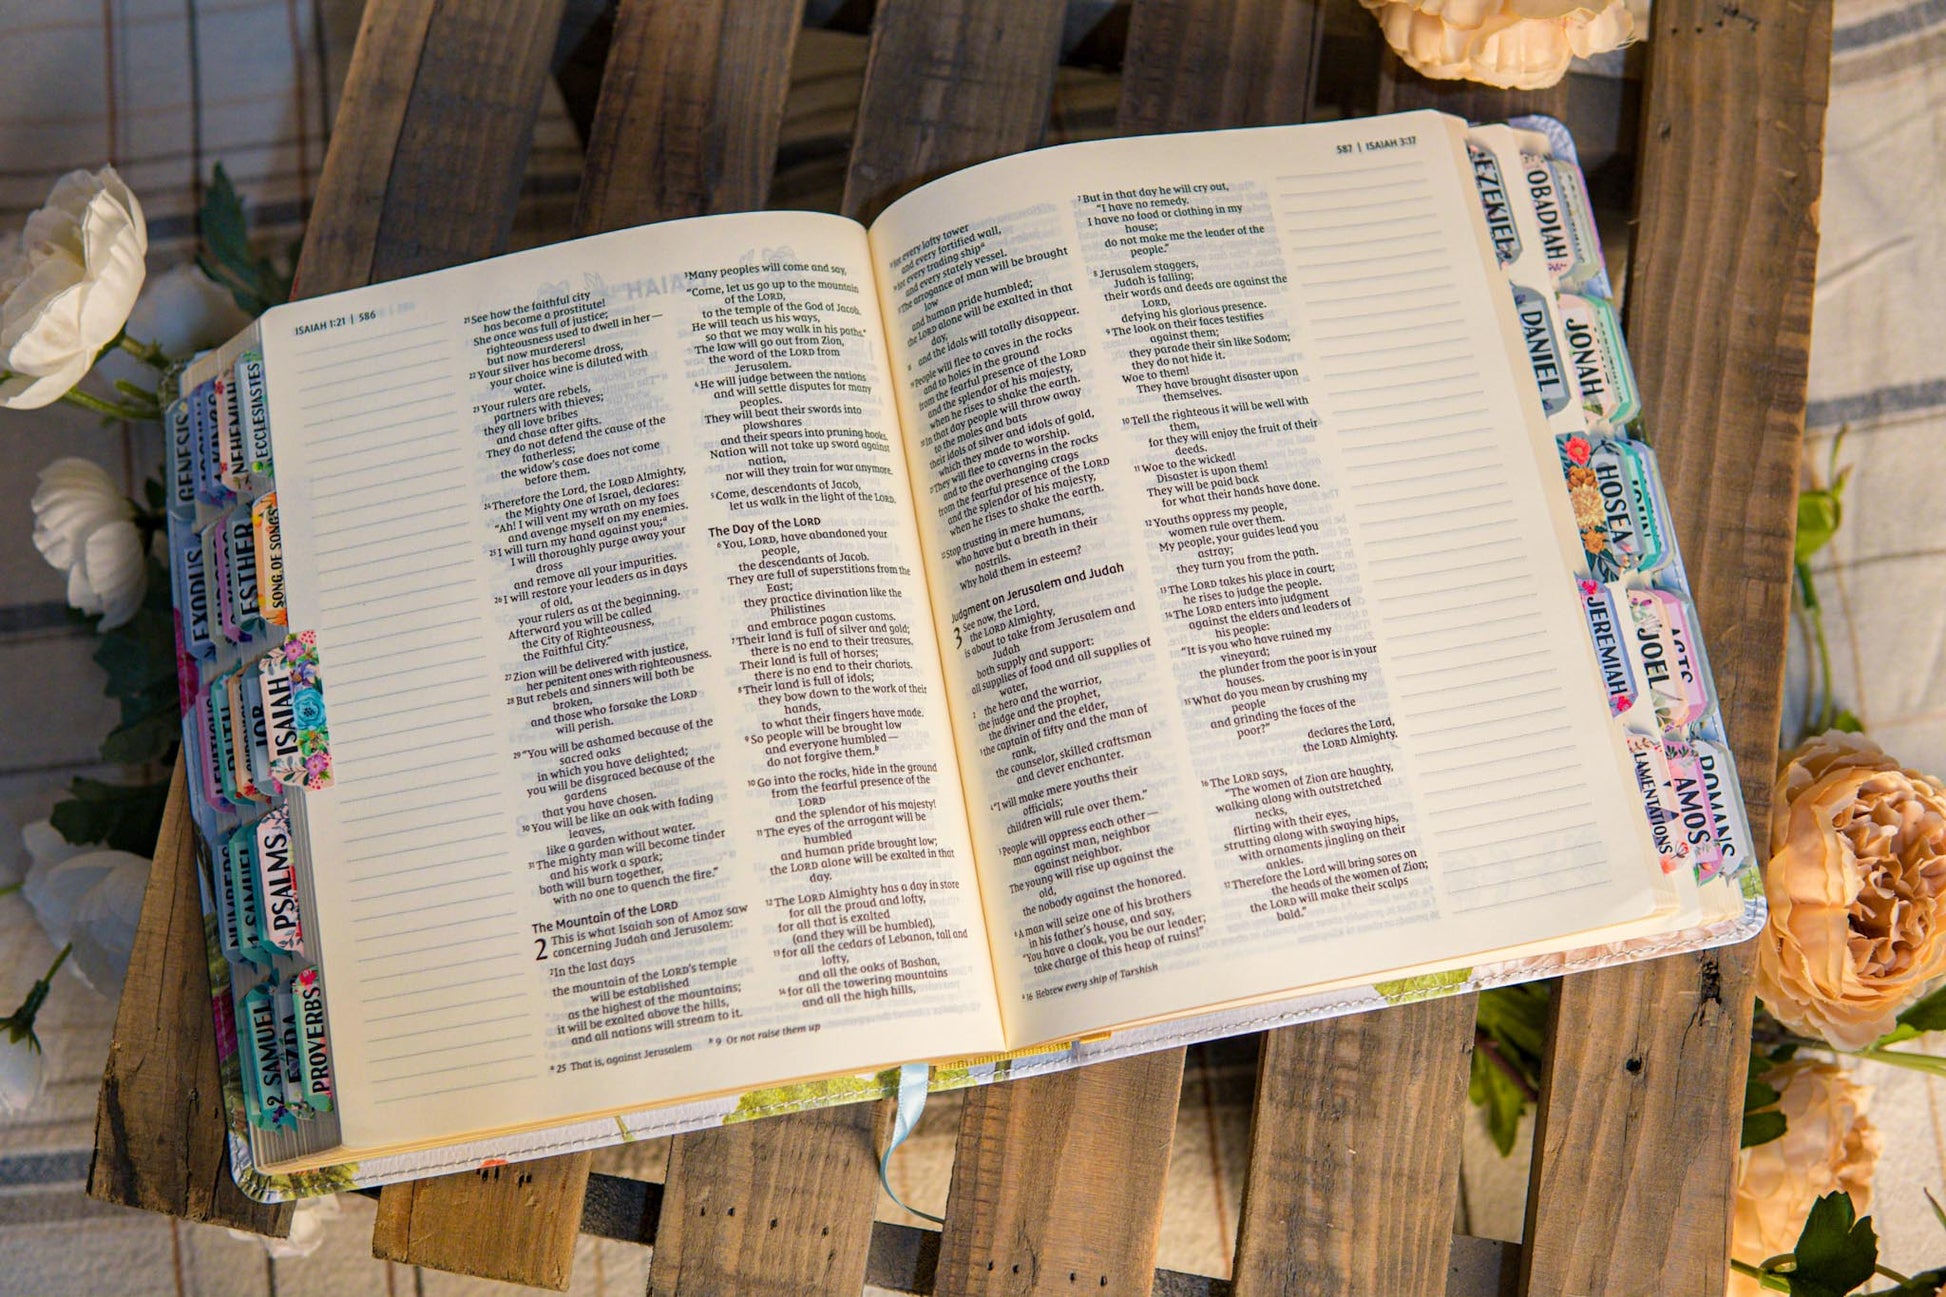 ISAIAH 1:21 | 586
21 See how the faithful city
has become a prostitute!
She once was full of justice;
righteousness used to dwell in her—
but now murderers!
22 Your silver has become dross,
your choice wine is diluted with
water.
23 Your rulers are rebels,
partners with thieves;
they all love bribes
and chase after gifts.
They do not defend the cause of the
fatherless;
the widow's case does not come
before them.
24 Therefore the Lord, the LORD Almighty,
the Mighty One of Israel, declares:
"Ah! I will vent my wrath on my foes
and avenge myself on my enemies.
25 I will turn my hand against you;a
I will thoroughly purge away your
dross
and remove all your impurities.
26 I will restore your leaders as in days
of old,
your rulers as at the beginning.
Afterward you will be called
the City of Righteousness,
the Faithful City."
27 Zion will be delivered with justice,
her penitent ones with righteousness.
28 But rebels and sinners will both be
broken,
and those who forsake the LORD
will perish.
29 "You will be ashamed because of the
sacred oaks
in which you have delighted;
you will be disgraced because of the
gardens
that you have chosen.
30 You will be like an oak with fading
leaves,
like a garden without water.
31 The mighty man will become tinder
and his work a spark;
both will burn together,
with no one to quench the fire."
The Mountain of the LORD
2 This is what Isaiah son of Amoz saw
concerning Judah and Jerusalem:
2 In the last days
the mountain of the LORD's temple
will be established
as the highest of the mountains;
it will be exalted above the hills,
and all nations will stream to it.
3 Many peoples will come and say,
"Come, let us go up to the mountain
of the LORD,
to the temple of the God of Jacob.
He will teach us his ways,
so that we may walk in his paths."
The law will go out from Zion,
the word of the LORD from
Jerusalem.
4 He will judge between the nations
and will settle disputes for many
peoples.
They will beat their swords into
plowshares
and their spears into pruning hooks.
Nation will not take up sword against
nation,
nor will they train for war anymore.
5 Come, descendants of Jacob,
let us walk in the light of the LORD.
The Day of the LORD
6 You, LORD, have abandoned your
people,
the descendants of Jacob.
They are full of superstitions from the
East;
they practice divination like the
Philistines
and embrace pagan customs.
7 Their land is full of silver and gold;
there is no end to their treasures.
Their land is full of horses;
there is no end to their chariots.
8 Their land is full of idols;
they bow down to the work of their
hands,
to what their fingers have made.
9 So people will be brought low
and everyone humbled—
do not forgive them.b
10 Go into the rocks, hide in the ground
from the fearful presence of the
LORD
and the splendor of his majesty!
11 The eyes of the arrogant will be
humbled
and human pride brought low;
the LORD alone will be exalted in that
day.
12 The LORD Almighty has a day in store
for all the proud and lofty,
for all that is exalted
(and they will be humbled),
13 for all the cedars of Lebanon, tall and
lofty,
and all the oaks of Bashan,
14 for all the towering mountains
and all the high hills,
a 25 That is, against Jerusalem b 9 Or not raise them up
587 | ISAIAH 3:17
for every lofty tower
and every fortified wall,
for every trading ship a
and every stately vessel.
The arrogance of man will be brought
low
and human pride humbled;
the LORD alone will be exalted in that
day,
and the idols will totally disappear.
People will flee to caves in the rocks
and to holes in the ground
from the fearful presence of the LORD
and the splendor of his majesty,
when he rises to shake the earth.
In that day people will throw away
to the moles and bats
their idols of silver and idols of gold,
which they made to worship.
They will flee to caverns in the rocks
and to the overhanging crags
from the fearful presence of the LORD
and the splendor of his majesty,
when he rises to shake the earth.
Stop trusting in mere humans,
who have but a breath in their
nostrils.
Why hold them in esteem?
Judgment on Jerusalem and Judah
3 See now, the Lord,
the LORD Almighty,
is about to take from Jerusalem and
Judah
both supply and support:
all supplies of food and all supplies of
water,
2 the hero and the warrior,
the judge and the prophet,
the diviner and the elder,
3 the captain of fifty and the man of
rank,
the counselor, skilled craftsman
and clever enchanter.
4 "I will make mere youths their
officials;
children will rule over them."
5 People will oppress each other—
man against man, neighbor
against neighbor.
The young will rise up against the
old,
the nobody against the honored.
6 A man will seize one of his brothers
in his father's house, and say,
"You have a cloak, you be our leader;
take charge of this heap of ruins!"
a 16 Hebrew every ship of Tarshish
7 But in that day he will cry out,
"I have no remedy.
I have no food or clothing in my
house;
do not make me the leader of the
people."
8 Jerusalem staggers,
Judah is falling;
their words and deeds are against the
LORD,
defying his glorious presence.
9 The look on their faces testifies
against them;
they parade their sin like Sodom;
they do not hide it.
Woe to them!
They have brought disaster upon
themselves.
10 Tell the righteous it will be well with
them,
for they will enjoy the fruit of their
deeds.
11 Woe to the wicked!
Disaster is upon them!
They will be paid back
for what their hands have done.
12 Youths oppress my people,
women rule over them.
My people, your guides lead you
astray;
they turn you from the path.
13 The LORD takes his place in court;
he rises to judge the people.
14 The LORD enters into judgment
against the elders and leaders of
his people:
"It is you who have ruined my
vineyard;
the plunder from the poor is in your
houses.
15 What do you mean by crushing my
people
and grinding the faces of the
poor?"
declares the Lord,
the LORD Almighty.
16 The LORD says,
"The women of Zion are haughty,
walking along with outstretched
necks,
flirting with their eyes,
strutting along with swaying hips,
with ornaments jingling on their
ankles.
17 Therefore the Lord will bring sores on
the heads of the women of Zion;
the LORD will make their scalps
bald."
GENESIS
NEHEMIAH
ECCLESIASTES
EXODUS
ESTHER
SONG OF SONGS
LEVITICUS
JOB
ISAIAH
NUMBERS
1 SAMUEL
PSALMS
2 SAMUEL
EZRA
PROVERBS
EZEKIEL
OBADIAH
DANIEL
JONAH
HOSEA
JOHN
JEREMIAH
JOEL
ACTS
LAMENTATIONS
AMOS
ROMANS